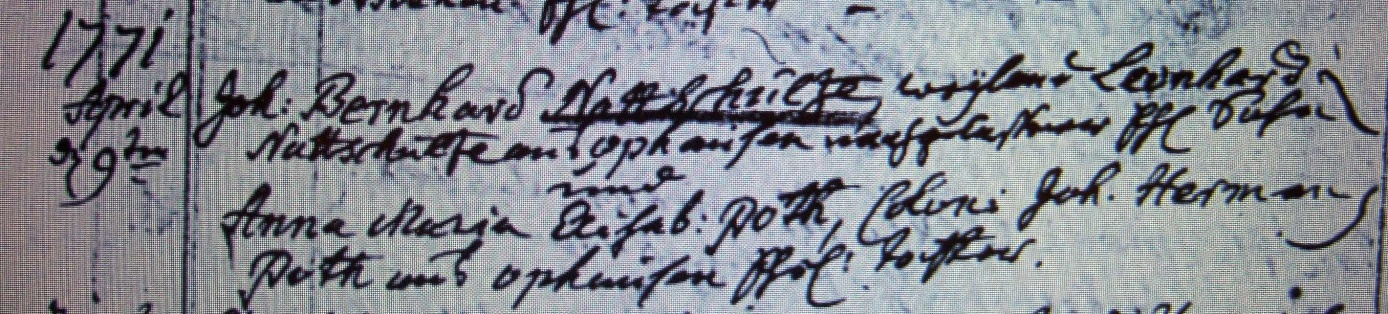 1771
April
29ten
Joh: Bernhard Nattschulte, weyland Leonhard
Nattschulte aus ophausen nachgelassener Ehl Sohn
und
Anna Maria Elisab: Poth, Coloni Joh. Herman
Poth aus ophausen Ehel: tochter.